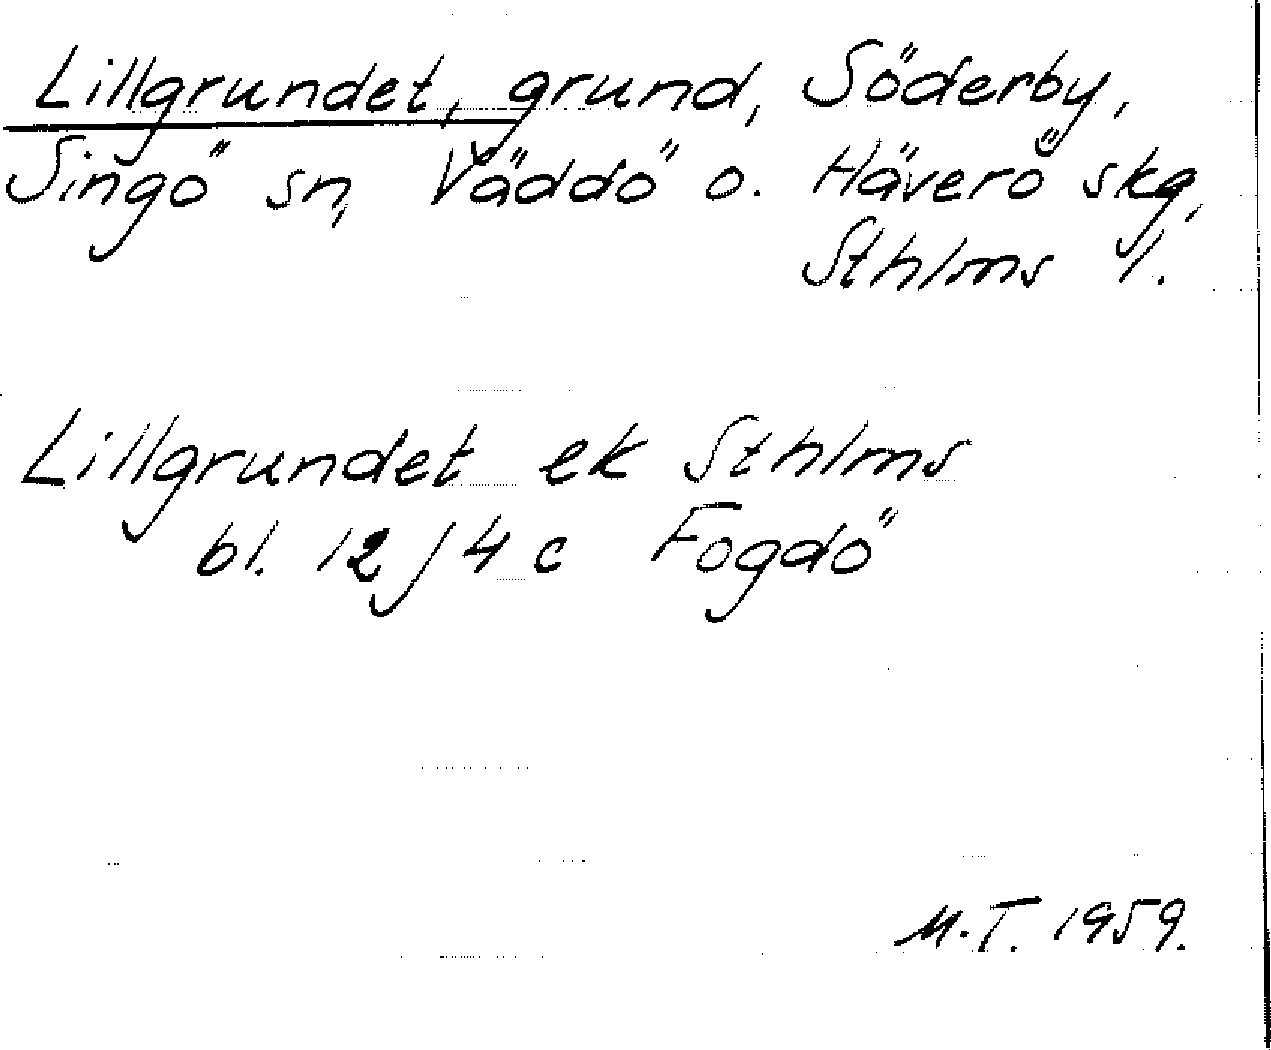 Lillgrundet, grund, Söderby,
Singö sn, Väddö o. Häverö skg,
Sthlms l.
Lillgrundet ek Sthlms
bl. 12 J 4 c Fogdö
M.T. 1959.